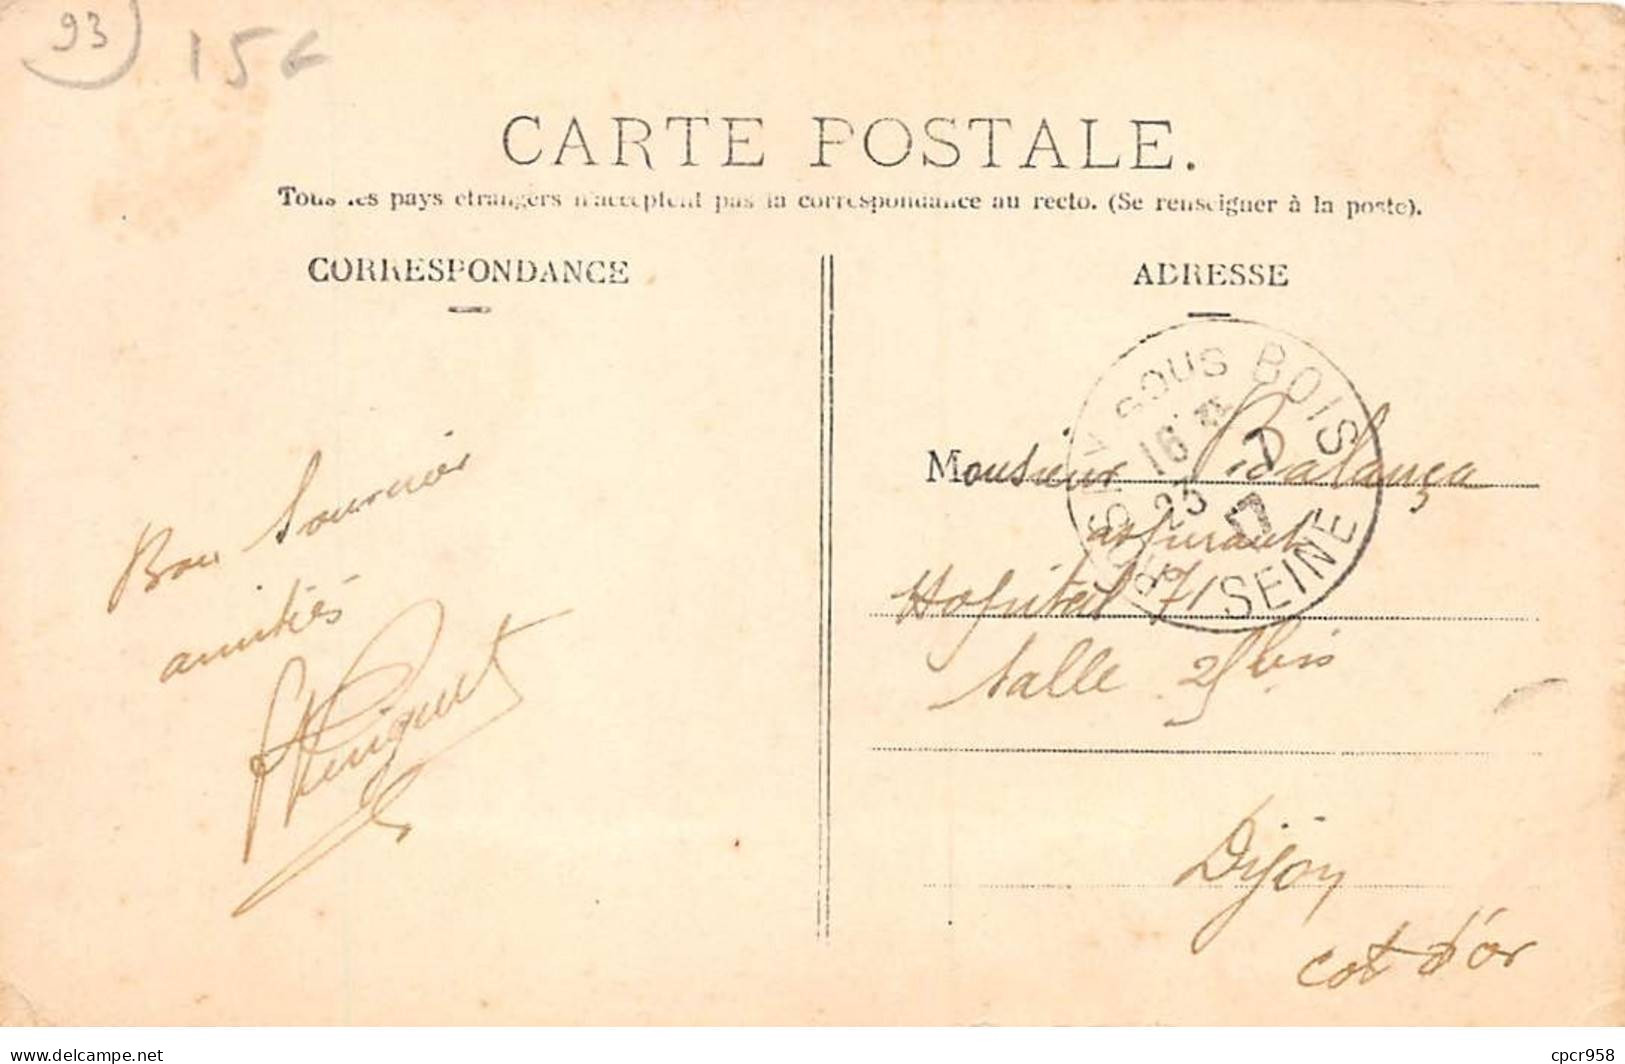 93
15€
CARTE POSTALE.
Tous les pays etrangers n'acceptent pas la correspondance au recto. (Se renseigner à la poste).
CORRESPONDANCE
ADRESSE
Bon Souvenir
amitiés
ROSNY SOUS BOIS
16
23 7
17
SEINE
Monsieur Balança
aspirant
Hopital 71
Salle 25 bis
Dijon
Cot d'or
www.delcampe.net
cpcr958